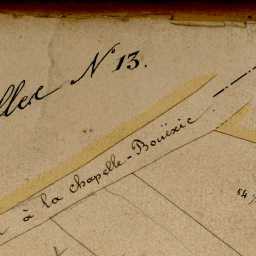 N° 13.
à la chapelle-Bouëxic